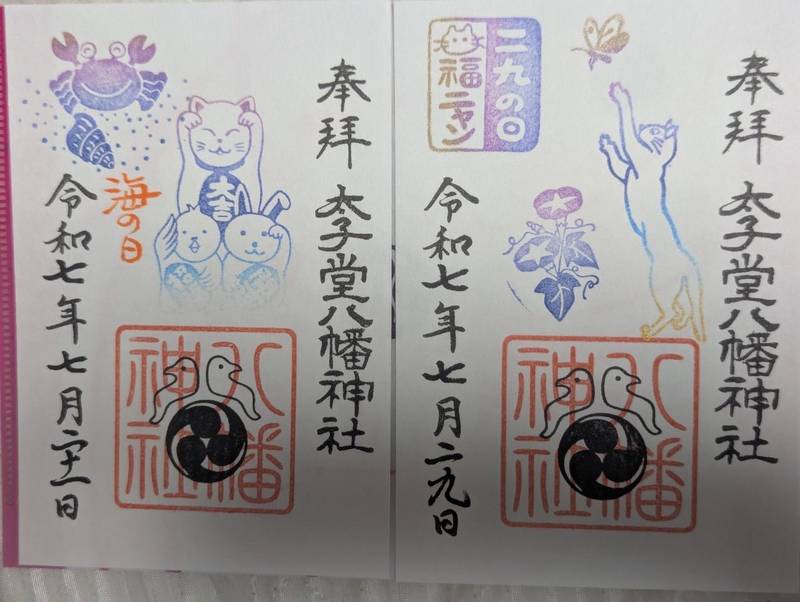 奉拝
太子堂八幡神社
大吉
海の日
令和七年七月二十一日
八幡
神社
奉拝
太子堂八幡神社
二九の日
福ニャン
令和七年七月二九日
八幡
神社